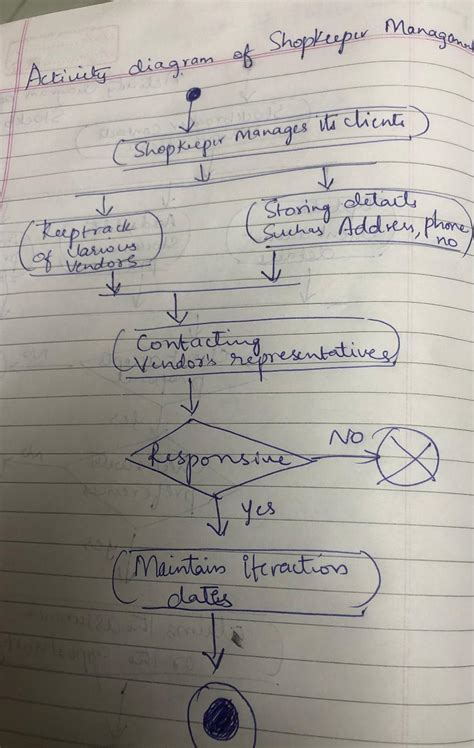 Activity diagram of Shopkeeper Management
Shopkeeper Manages its clients
Keeptrack
of various
Vendors
Storing details
Suchas Address, phone
no
Contacting
Vendor's representatives
Responsive
NO
Yes
Maintains iteractions
dates